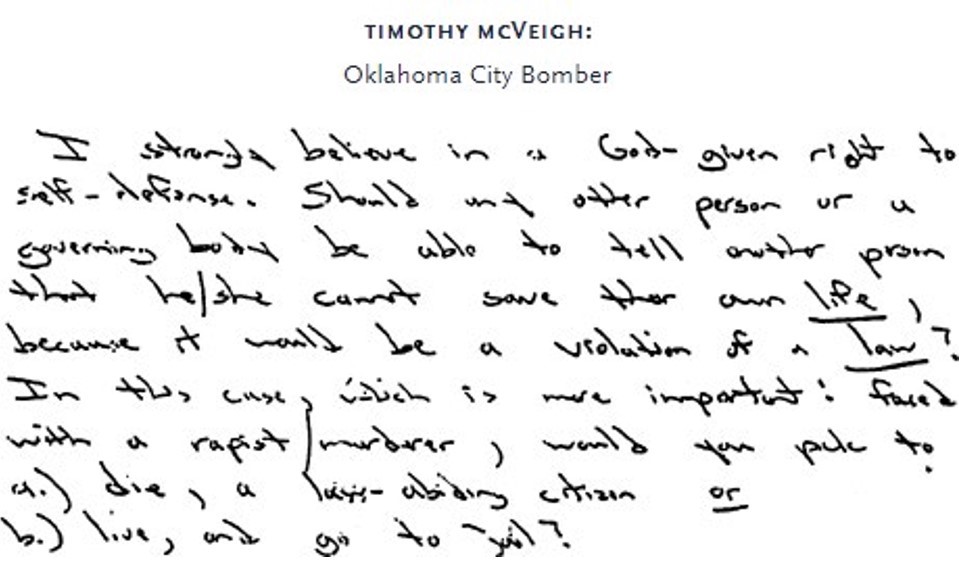 TIMOTHY MCVEIGH:
Oklahoma City Bomber
I strongly believe in a God-given right to
self-defense. Should any other person or a
governing body be able to tell another person
that he/she cannot save their own life,
because it would be a violation of a law?
In this case, which is more important: faced
with a rapist/murderer, would you pick to
a.) die, a law-abiding citizen or
b.) live, and go to jail?